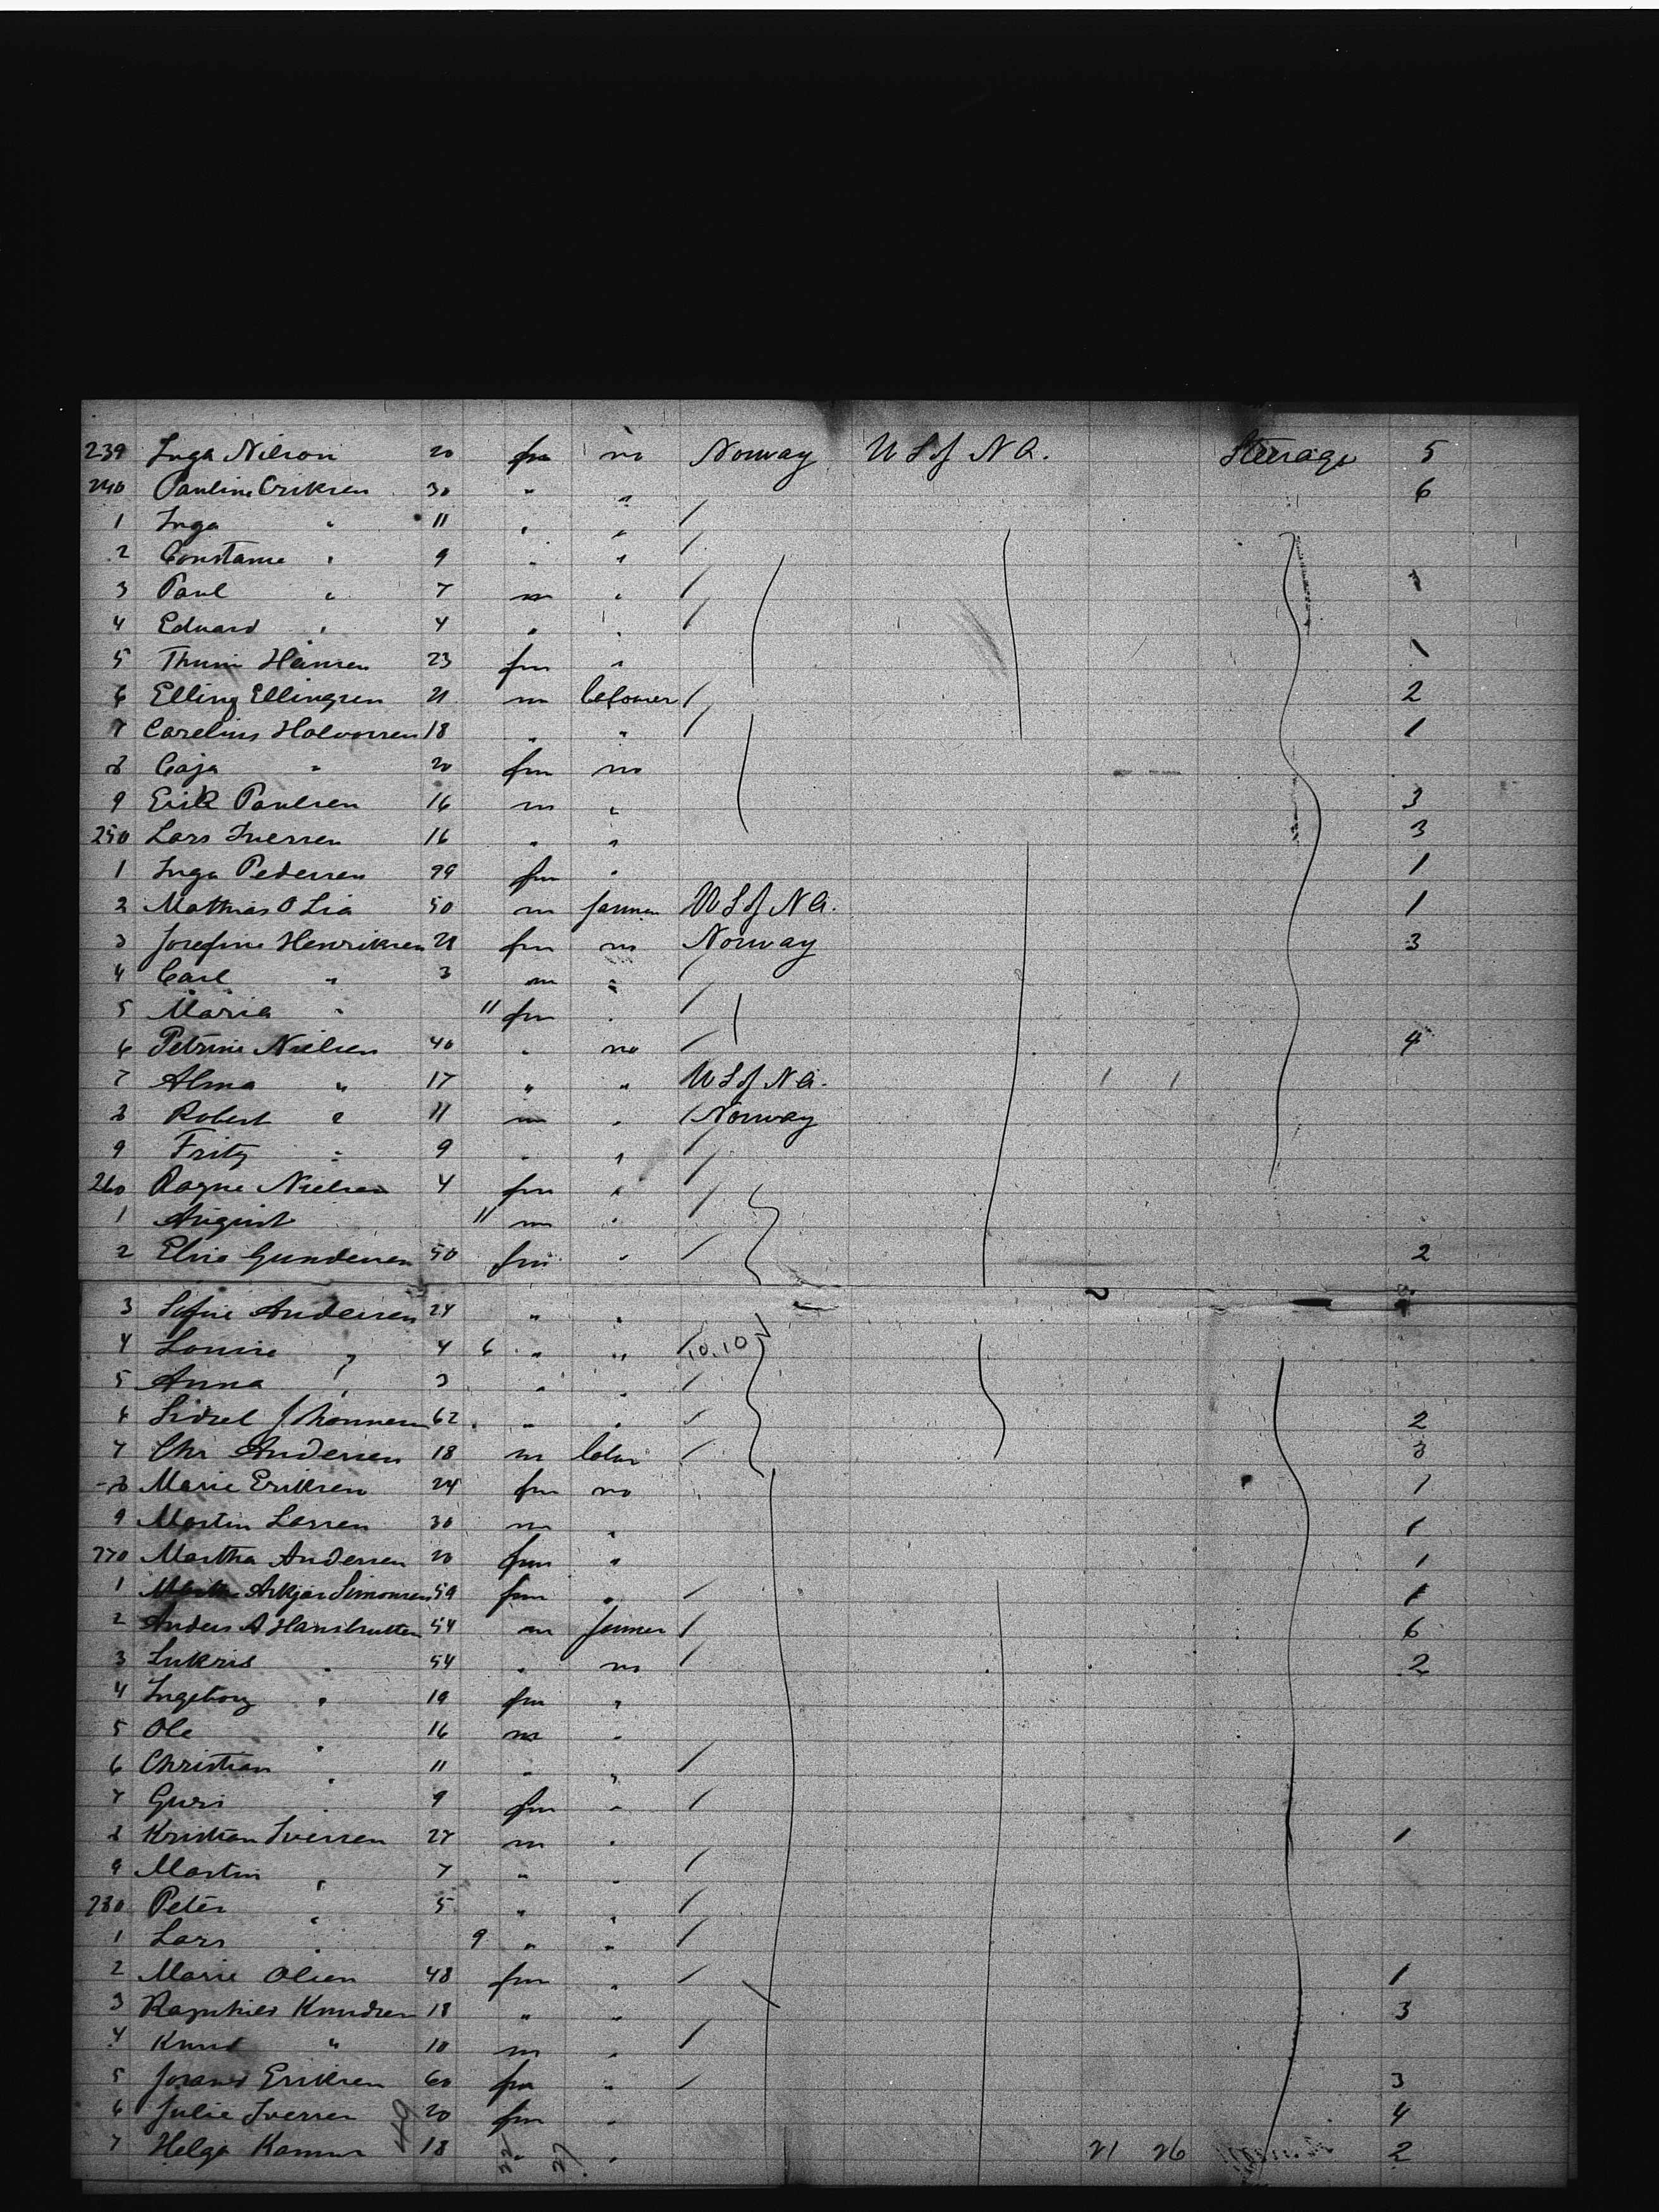 239 Inga Nilson 20 fm no Norway U S of N A. Steerage 5
240 Pauline Eriksen 30 " " 6
1 Inga " 11 " " /
2 Constanse " 9 " " /
3 Paul " 7 m " / 1
4 Eduard " 4 " " /
5 Hansen 23 fm " 1
6 Elling Ellingsen 21 m labourer / 2
7 Carelius Halvorsen 18 " " / 1
8 Caja " 20 fm no
9 Erik Paulsen 16 m " 3
250 Lars Iversen 16 " " 3
1 Inga Pedersen 99 fm " 1
2 Mathias O Lia 50 m farmer U S of N A. 1
3 Josefine Henriksen 28 fm no Norway 3
4 Carl " 3 m " /
5 Maria " 11 fm " /
6 Petrine Nielsen 40 " no / 4
7 Alma " 17 " " U S of N A. / /
8 Robert " 11 m " Norway
9 Fritz " 9 " " /
260 Ragne Nielsen 4 fm " /
1 August 11 m " /
2 Elise Gundersen 50 fm " / 2
3 Sofie Andersen 24 " "
4 Louise " 4 6 " " / 10.10
5 Anna " 3 " " /
6 Sidsel 62 " " / 2
7 Chr Andersen 18 m labur / 3
8 Marie Eriksen 24 fm no 1
9 Martin Larsen 30 m " 1
270 Martha Andersen 20 fm " 1
1 Simonsen 59 fm " / 1
2 Anders A 54 m farmer / 6
3 54 " no / 2
4 Ingeborg " 19 fm "
5 Ole " 16 m "
6 Christian " 11 " " /
7 Guri " 9 fm " /
8 Kristian Iversen 27 m " 1
9 Martin " 7 " " /
280 Peter " 5 " " /
1 Lars " 9 " " /
2 Marie Olsen 48 fm " / 1
3 Knudsen 18 " " 3
4 Knud " 10 m " /
5 Eriksen 60 fm " / 3
6 Julie Iversen 20 fm " 4
7 Helga 18 " " 21 26 2